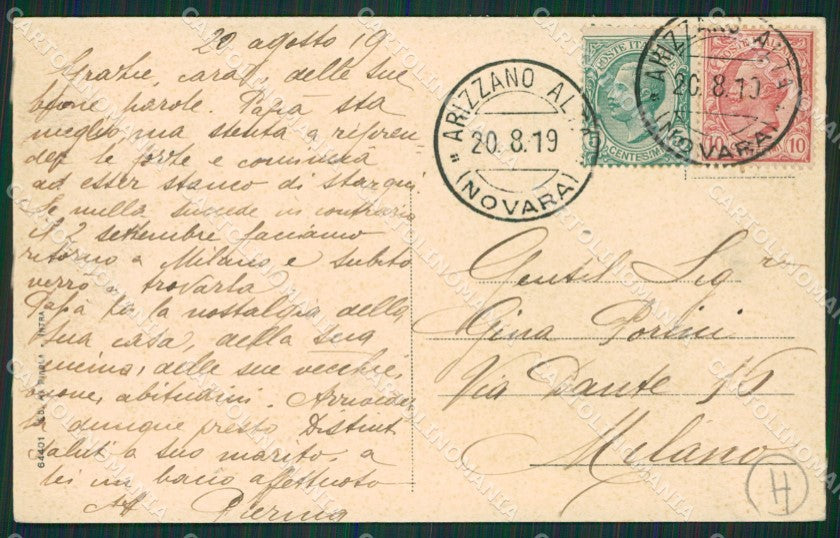 20 agosto 19
Grazie, cara, delle sue
buone parole. Papà sta
meglio, ma stenta a ripren-
der le forze e comincia
ad esser stanco di star qui
Se nulla succede in contrario
il 2 settembre facciamo
ritorno a Milano e subito
verrò a trovarla
Papà ha la nostalgia della
sua casa, della sua
cucina, delle sue vecchie,
buone, abitudini. Arrivede
la dunque presto Distinti
saluti a suo marito, a
lei un bacio affettuoso
Aff Pierina
Gentil Sigr
Gina Porsini
Via Dante 16
Milano
"ARIZZANO AL
20.8.19
(NOVARA)
POSTE ITALIANE
CENTESIMI
"ARIZZANO
20.8.19
(NOVARA)
10
64401
INTRA
H
CARTOLINOMANIA